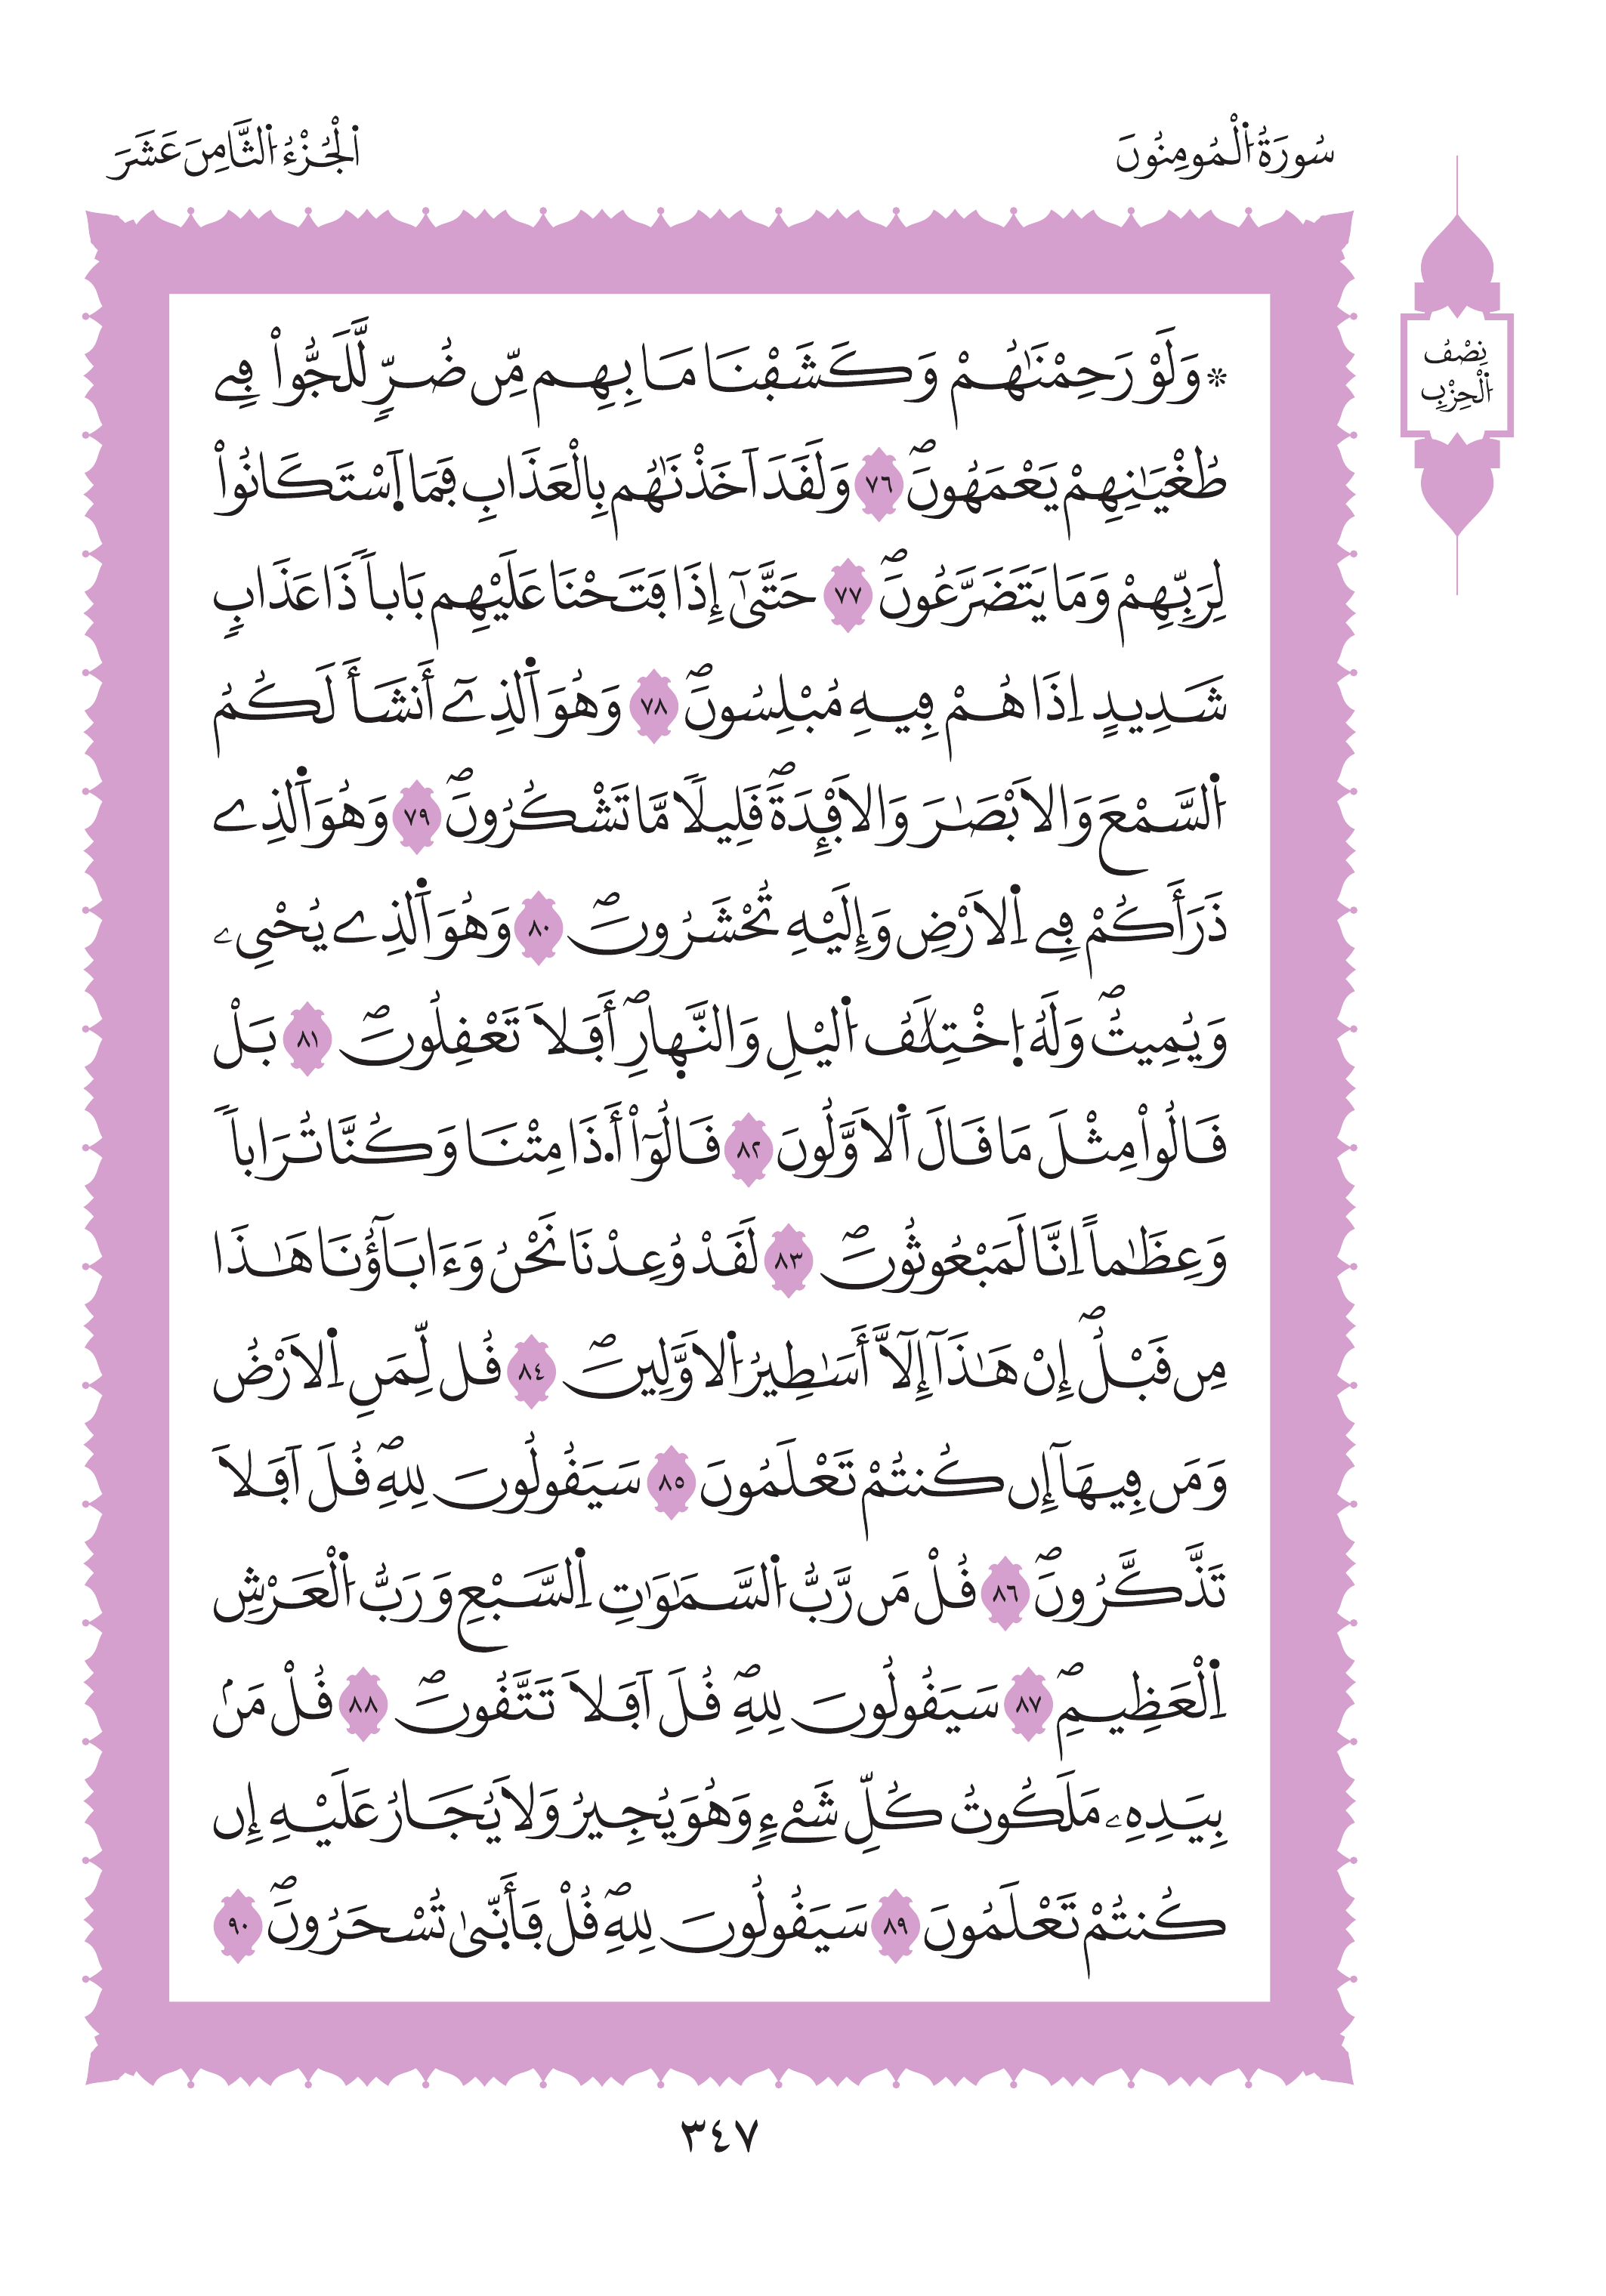 سُورَةُ اُ۬لْمُومِنُونَ
اَ۬لْجُزْءُ اُ۬لثَّامِنَ عَشَرَ
نِصْفُ
اُ۬لْحِزْبِ
۞وَلَوْ رَحِمْنَٰهُمْ وَكَشَفْنَا مَا بِهِم مِّن ضُرّٖ لَّلَجُّواْ فِے
طُغْيَٰنِهِمْ يَعْمَهُونَۖ ٧٦ وَلَقَدَ اَخَذْنَٰهُم بِالْعَذَابِ فَمَا اَ۪سْتَكَانُواْ
لِرَبِّهِمْ وَمَا يَتَضَرَّعُونَۖ ٧٧ حَتَّيٰٓ إِذَا فَتَحْنَا عَلَيْهِم بَاباٗ ذَا عَذَابٖ
شَدِيدٍ اِذَا هُمْ فِيهِ مُبْلِسُونَۖ ٧٨ وَهُوَ اَ۬لذِےٓ أَنشَأَ لَكُمُ
اُ۬لسَّمْعَ وَالَابْصَٰرَ وَالَافْـِٕدَةَۖ قَلِيلاٗ مَّا تَشْكُرُونَۖ ٧٩ وَهُوَ اَ۬لذِے
ذَرَأَكُمْ فِے اِ۬لَارْضِ وَإِلَيْهِ تُحْشَرُونَۖ ٨٠ وَهُوَ اَ۬لذِے يُحْيِۦ
وَيُمِيتُۖ وَلَهُ اُ۪خْتِلَٰفُ اُ۬ليْلِ وَالنَّه۪ارِۖ أَفَلَا تَعْقِلُونَۖ ٨١ بَلْ
قَالُواْ مِثْلَ مَا قَالَ اَ۬لَاوَّلُونَ ٨٢ قَالُوٓاْ أَ۟ذَا مِتْنَا وَكُنَّا تُرَاباٗ
وَعِظَٰماً اِنَّا لَمَبْعُوثُونَۖ ٨٣ لَقَدْ وُعِدْنَا نَحْنُ وَءَابَآؤُنَا هَٰذَا
مِن قَبْلُۖ إِنْ هَٰذَآ إِلَّآ أَسَٰطِيرُ اُ۬لَاوَّلِينَۖ ٨٤ قُل لِّمَنِ اِ۬لَارْضُ
وَمَن فِيهَآ إِن كُنتُمْ تَعْلَمُونَ ٨٥ سَيَقُولُونَ لِلهِۖ قُلَ اَفَلَا
تَذَّكَّرُونَۖ ٨٦ قُلْ مَن رَّبُّ اُ۬لسَّمَٰوَٰتِ اِ۬لسَّبْعِ وَرَبُّ اُ۬لْعَرْشِ
اِ۬لْعَظِيمِۖ ٨٧ سَيَقُولُونَ لِلهِۖ قُلَ اَفَلَا تَتَّقُونَۖ ٨٨ قُلْ مَنۢ
بِيَدِهِۦ مَلَكُوتُ كُلِّ شَےْءٖ وَهُوَ يُجِيرُ وَلَا يُجَارُ عَلَيْهِ إِن
كُنتُمْ تَعْلَمُونَ ٨٩ سَيَقُولُونَ لِلهِۖ قُلْ فَأَنّ۪يٰ تُسْحَرُونَۖ ٩٠
٣٤٧